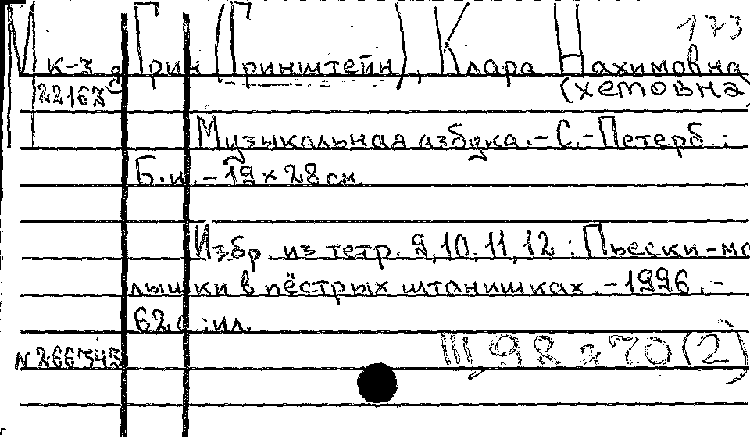 173
М к-3 Грин (Гринштейн), Клара Нахимовна
22167 (хемовна
Музыкальная азбука. - С.-Петерб.:
Б.и. - 19 x 28 см.
Избр. из тетр. 9, 10, 11, 12 : Пьески-ма
лышки в пёстрых штанишках. - 1996. -
62 с : ил.
N 266343 III, 98 я 70 (2)